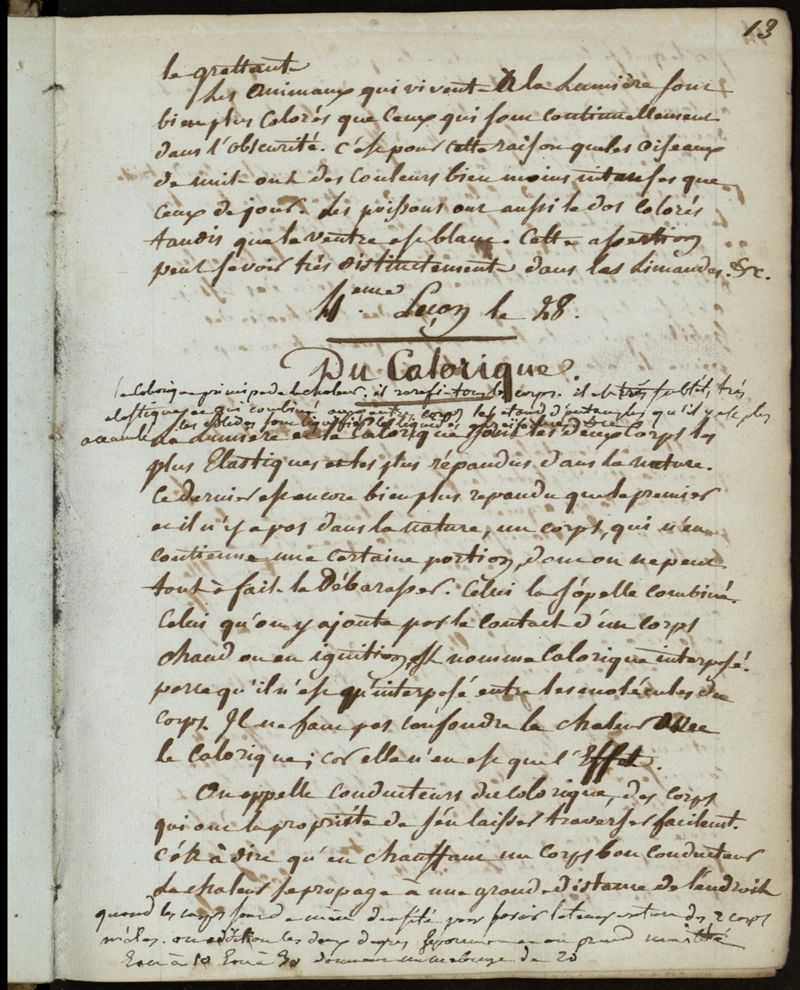 13
le grattant
Les animaux qui vivent à la Lumière sont
bien plus Colorés que Ceux qui sont continuellement
dans l'obscurité. c'est pour cette raison que les oiseaux
de nuit ont des couleurs bien moins intenses que
Ceux de jour. Les poissons ont aussi le dos Colorés
tandis que le ventre est blanc. Cette assertion
peut se voir très distinctement dans les Limandes. &c.
4.eme Leçon le 28.
Du Calorique.
le Calorique principe de la chaleur. il rarefie tous les corps. il est très subtil, très
elastique, et qui combiné corps les etend d'autant plus qu'il y est plus
accumulé les solides sont liquifiés les liquides
La Lumiere et le Calorique sont les deux Corps les
plus Elastiques et les plus repandus dans la nature.
Ce dernier est encore bien plus repandu que le premier
et il n'y a pas dans la nature, un corps, qui n'en
contienne une certaine portion, dont on ne peut
tout à fait le Débarasser. Celui la s'apelle combiné.
Celui qu'on y ajoute par le contact d'un corps
chaud ou en ignition, est nommé Calorique interposé.
parce qu'il n'est qu'interposé entre les molécules du
corps. Il ne faut pas confondre la chaleur avec
le Calorique; car elle n'en est que l'Effet.
On appelle conducteurs du calorique, des corps
qui ont la propriété de s'en laisser traverser facilemt.
C'est à dire qu'en chauffant un corps bon conducteur
La chaleur se propage a une grande distance de l'endroit
quand les corps sont de même densité pour savoir la temperature des 2 corps
mêlés. on additionne les deux degres et on prend moitié
Eau à 10 Eau à 30 donnent un melange de 20